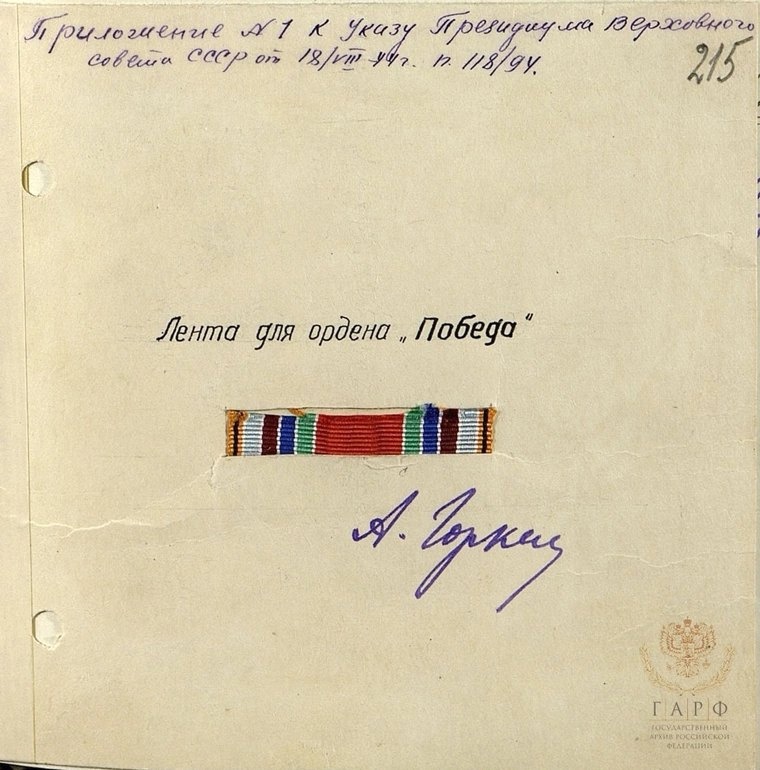 Приложение № 1 к Указу Президиума Верховного
совета СССР от 18/VIII-44г. п. 118/94.
215
Лента для ордена „Победа“
А. Горкин
ГАРФ
ГОСУДАРСТВЕННЫЙ
АРХИВ РОССИЙСКОЙ
ФЕДЕРАЦИИ